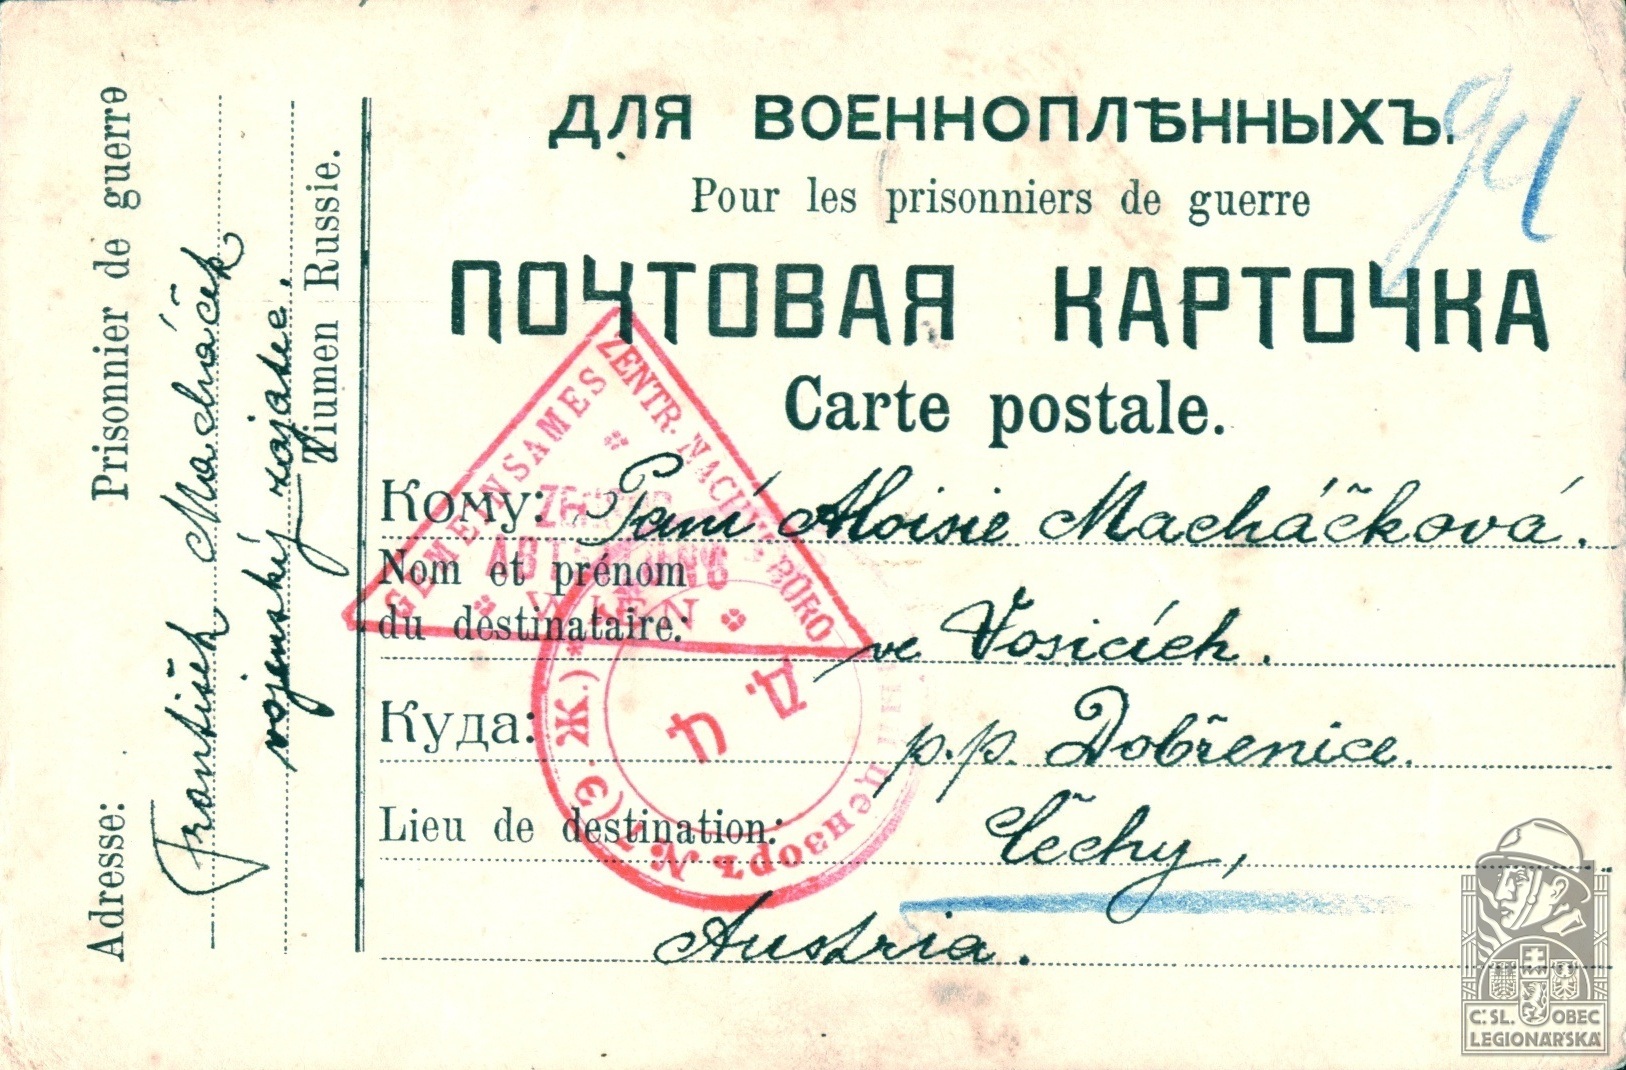 ДЛЯ ВОЕННОПЛѢННЫХЪ.
94
Pour les prisonniers de guerre
ПОЧТОВАЯ КАРТОЧКА
Carte postale.
Кому: Paní Aloisie Macháčková.
Nom et prénom
du destinataire:
ve Vosicích.
Куда: p.p. Dobřenice.
Lieu de destination: Čechy,
Austria.
Adresse: Prisonnier de guerre
František Macháček
vojenský zajatec.
Tiumen Russie.
GEMEINSAMES ZENTR. NACHW. BÜRO
WIEN
Цензоръ № 7 (Э. Ж.)
Д. Ц
Č.SL. OBEC
LEGIONÁŘSKÁ